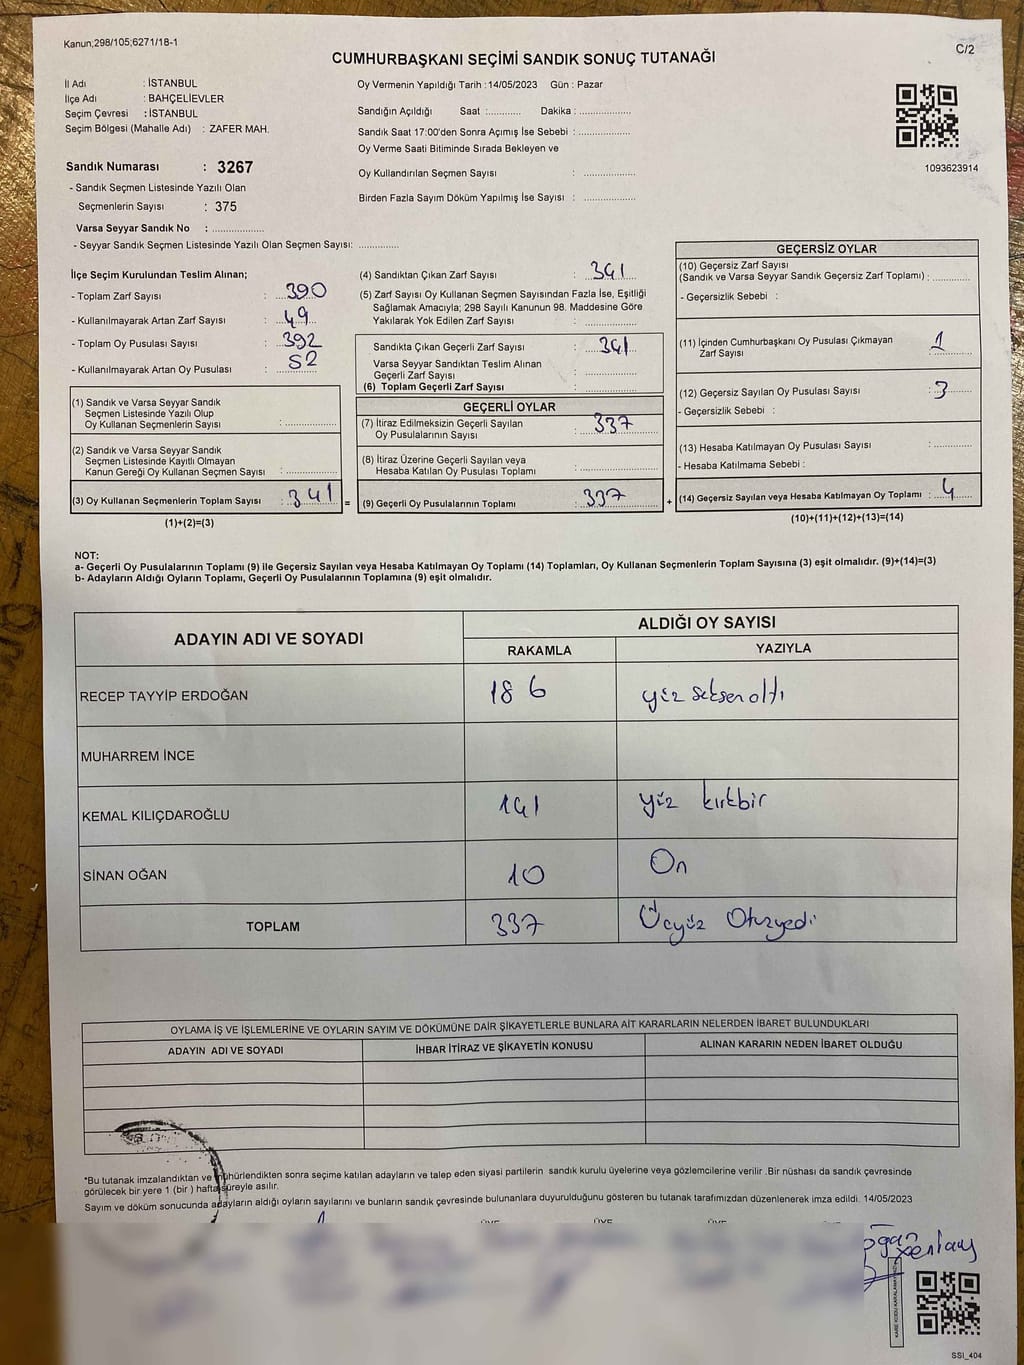 Kanun;298/105;6271/18-1
C/2
CUMHURBAŞKANI SEÇİMİ SANDIK SONUÇ TUTANAĞI
İl Adı : İSTANBUL
İlçe Adı : BAHÇELİEVLER
Seçim Çevresi : İSTANBUL
Seçim Bölgesi (Mahalle Adı) : ZAFER MAH.
Sandık Numarası : 3267
- Sandık Seçmen Listesinde Yazılı Olan
Seçmenlerin Sayısı : 375
Varsa Seyyar Sandık No : ..................
- Seyyar Sandık Seçmen Listesinde Yazılı Olan Seçmen Sayısı: ..............
Oy Vermenin Yapıldığı Tarih : 14/05/2023 Gün : Pazar
Sandığın Açıldığı Saat :............ Dakika : ..................
Sandık Saat 17:00'den Sonra Açımış İse Sebebi : ..................
Oy Verme Saati Bitiminde Sırada Bekleyen ve
Oy Kullandırılan Seçmen Sayısı : ..................
Birden Fazla Sayım Döküm Yapılmış İse Sayısı : ..................
1093623914
İlçe Seçim Kurulundan Teslim Alınan;
- Toplam Zarf Sayısı : 390
- Kullanılmayarak Artan Zarf Sayısı : 49
- Toplam Oy Pusulası Sayısı : 392
- Kullanılmayarak Artan Oy Pusulası : 52
(1) Sandık ve Varsa Seyyar Sandık
Seçmen Listesinde Yazılı Olup
Oy Kullanan Seçmenlerin Sayısı : ..................
(2) Sandık ve Varsa Seyyar Sandık
Seçmen Listesinde Kayıtlı Olmayan
Kanun Gereği Oy Kullanan Seçmen Sayısı : ..................
(3) Oy Kullanan Seçmenlerin Toplam Sayısı : 341 =
(1)+(2)=(3)
(4) Sandıktan Çıkan Zarf Sayısı : 341
(5) Zarf Sayısı Oy Kullanan Seçmen Sayısından Fazla İse, Eşitliği
Sağlamak Amacıyla; 298 Sayılı Kanunun 98. Maddesine Göre
Yakılarak Yok Edilen Zarf Sayısı : ..................
Sandıkta Çıkan Geçerli Zarf Sayısı : 341
Varsa Seyyar Sandıktan Teslim Alınan
Geçerli Zarf Sayısı : ..................
(6) Toplam Geçerli Zarf Sayısı : ..................
GEÇERLİ OYLAR
(7) İtiraz Edilmeksizin Geçerli Sayılan
Oy Pusulalarının Sayısı : 337
(8) İtiraz Üzerine Geçerli Sayılan veya
Hesaba Katılan Oy Pusulası Toplamı : ..................
(9) Geçerli Oy Pusulalarının Toplamı : 337 +
GEÇERSİZ OYLAR
(10) Geçersiz Zarf Sayısı
(Sandık ve Varsa Seyyar Sandık Geçersiz Zarf Toplamı) : ............
- Geçersizlik Sebebi :
(11) İçinden Cumhurbaşkanı Oy Pusulası Çıkmayan
Zarf Sayısı : 1
(12) Geçersiz Sayılan Oy Pusulası Sayısı : 3
- Geçersizlik Sebebi :
(13) Hesaba Katılmayan Oy Pusulası Sayısı : ............
- Hesaba Katılmama Sebebi :
(14) Geçersiz Sayılan veya Hesaba Katılmayan Oy Toplamı : 4
(10)+(11)+(12)+(13)=(14)
NOT:
a- Geçerli Oy Pusulalarının Toplamı (9) ile Geçersiz Sayılan veya Hesaba Katılmayan Oy Toplamı (14) Toplamları, Oy Kullanan Seçmenlerin Toplam Sayısına (3) eşit olmalıdır. (9)+(14)=(3)
b- Adayların Aldığı Oyların Toplamı, Geçerli Oy Pusulalarının Toplamına (9) eşit olmalıdır.
ADAYIN ADI VE SOYADI
ALDIĞI OY SAYISI
RAKAMLA YAZIYLA
RECEP TAYYİP ERDOĞAN 186 yüz seksen altı
MUHARREM İNCE
KEMAL KILIÇDAROĞLU 141 yüz kırkbir
SİNAN OĞAN 10 On
TOPLAM 337 Üçyüz Otuzyedi
OYLAMA İŞ VE İŞLEMLERİNE VE OYLARIN SAYIM VE DÖKÜMÜNE DAİR ŞİKAYETLERLE BUNLARA AİT KARARLARIN NELERDEN İBARET BULUNDUKLARI
ADAYIN ADI VE SOYADI İHBAR İTİRAZ VE ŞİKAYETİN KONUSU ALINAN KARARIN NEDEN İBARET OLDUĞU
*Bu tutanak imzalandıktan ve mühürlendikten sonra seçime katılan adayların ve talep eden siyasi partilerin sandık kurulu üyelerine veya gözlemcilerine verilir .Bir nüshası da sandık çevresinde
görülecek bir yere 1 (bir ) hafta süreyle asılır.
Sayım ve döküm sonucunda adayların aldığı oyların sayılarını ve bunların sandık çevresinde bulunanlara duyurulduğunu gösteren bu tutanak tarafımızdan düzenlenerek imza edildi. 14/05/2023
ÜYE ÜYE ÜYE
SSI_404